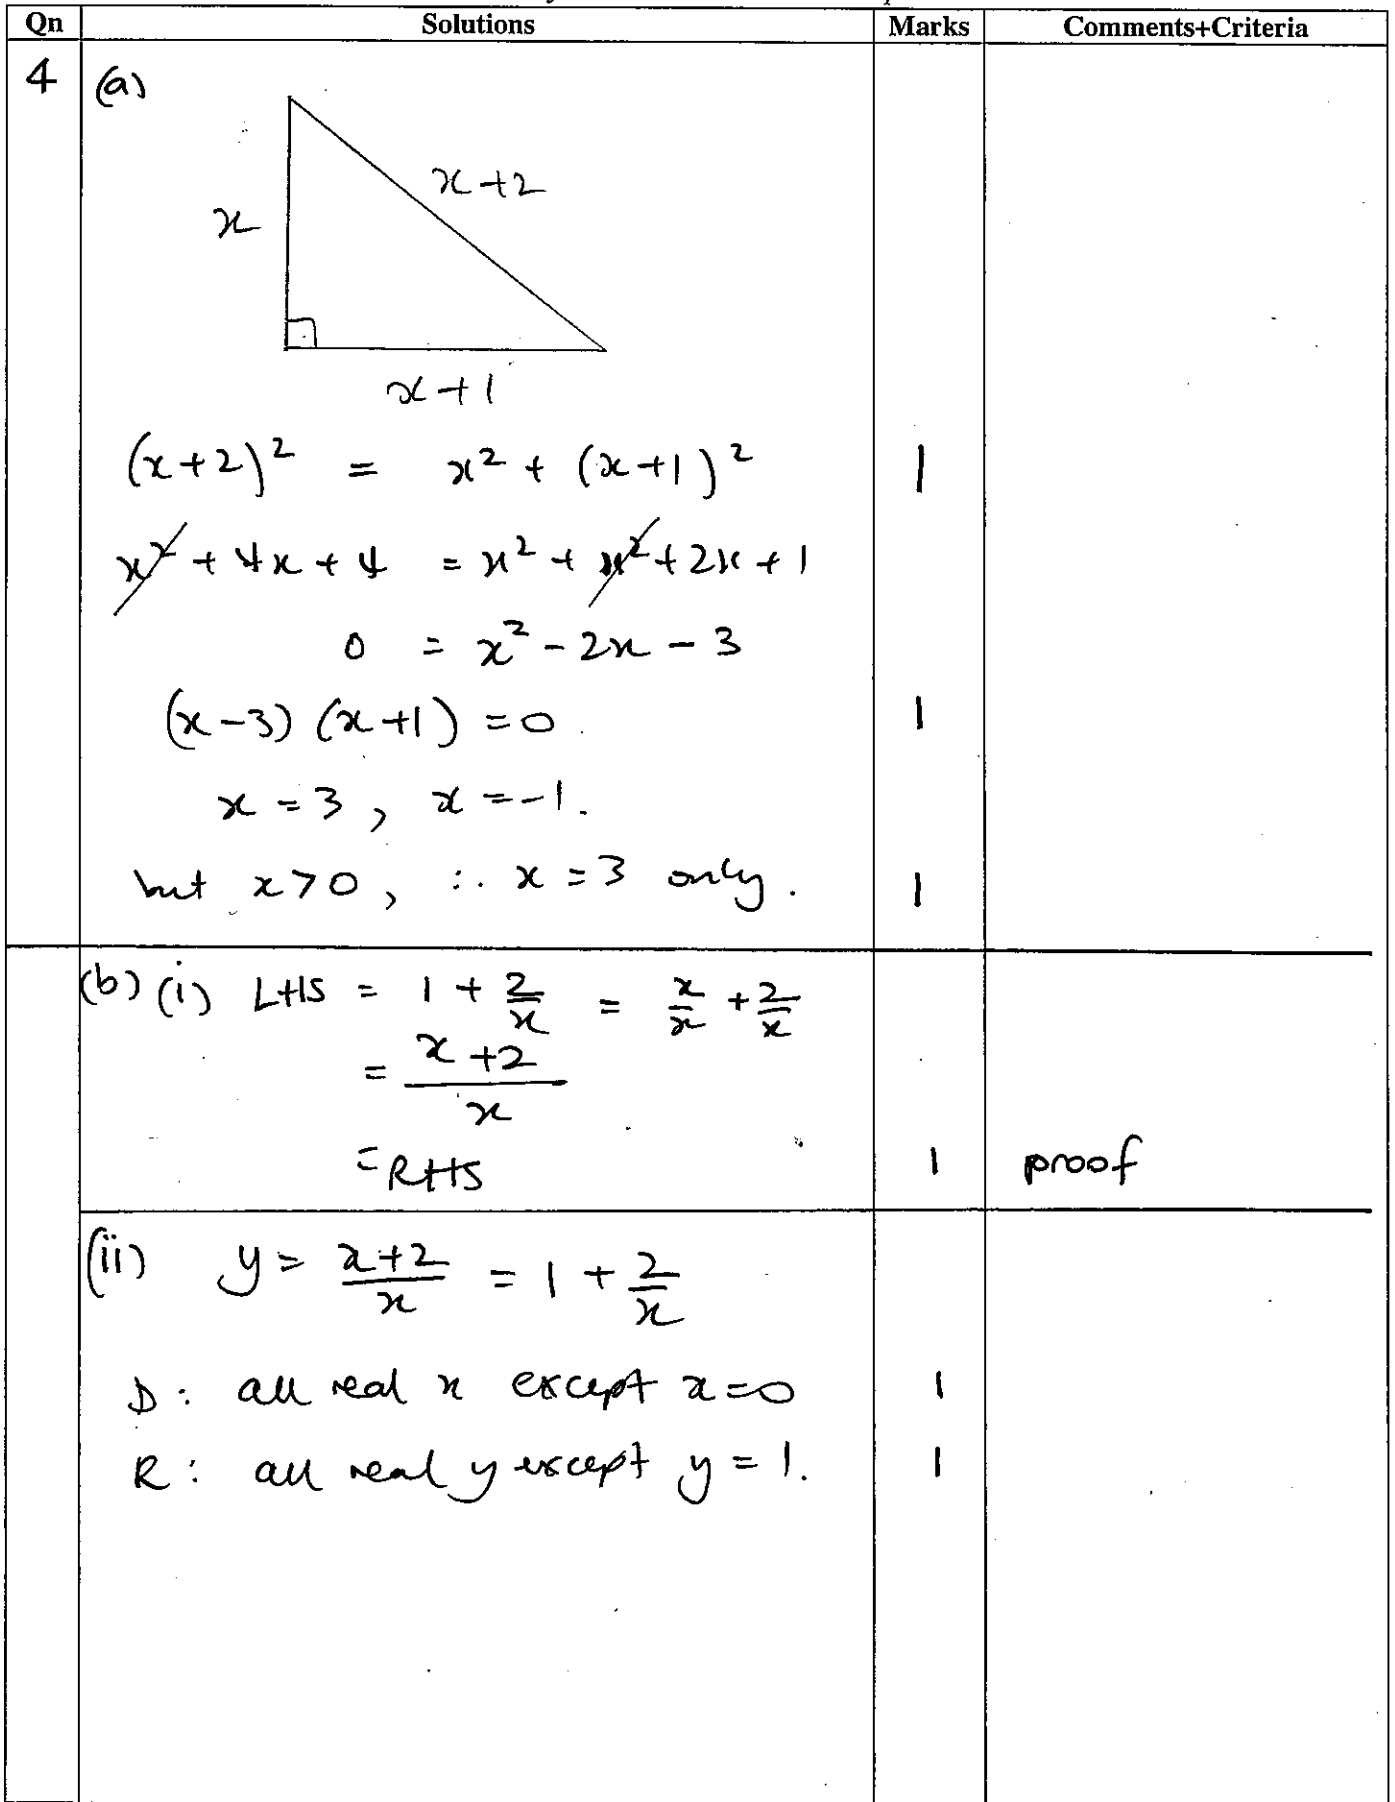 Qn Solutions Marks Comments+Criteria
4 (a)
x+2
x
x+1
(x+2)² = x² + (x+1)² 1
x² + 4x + 4 = x² + x² + 2x + 1
0 = x² - 2x - 3
(x-3)(x+1) = 0. 1
x = 3, x = -1.
but x > 0, ∴ x = 3 only. 1
(b) (i) LHS = 1 + 2/x = x/x + 2/x
= (x+2)/x
= RHS 1 proof
(ii) y = (x+2)/x = 1 + 2/x
D: all real x except x=0 1
R: all real y except y = 1. 1